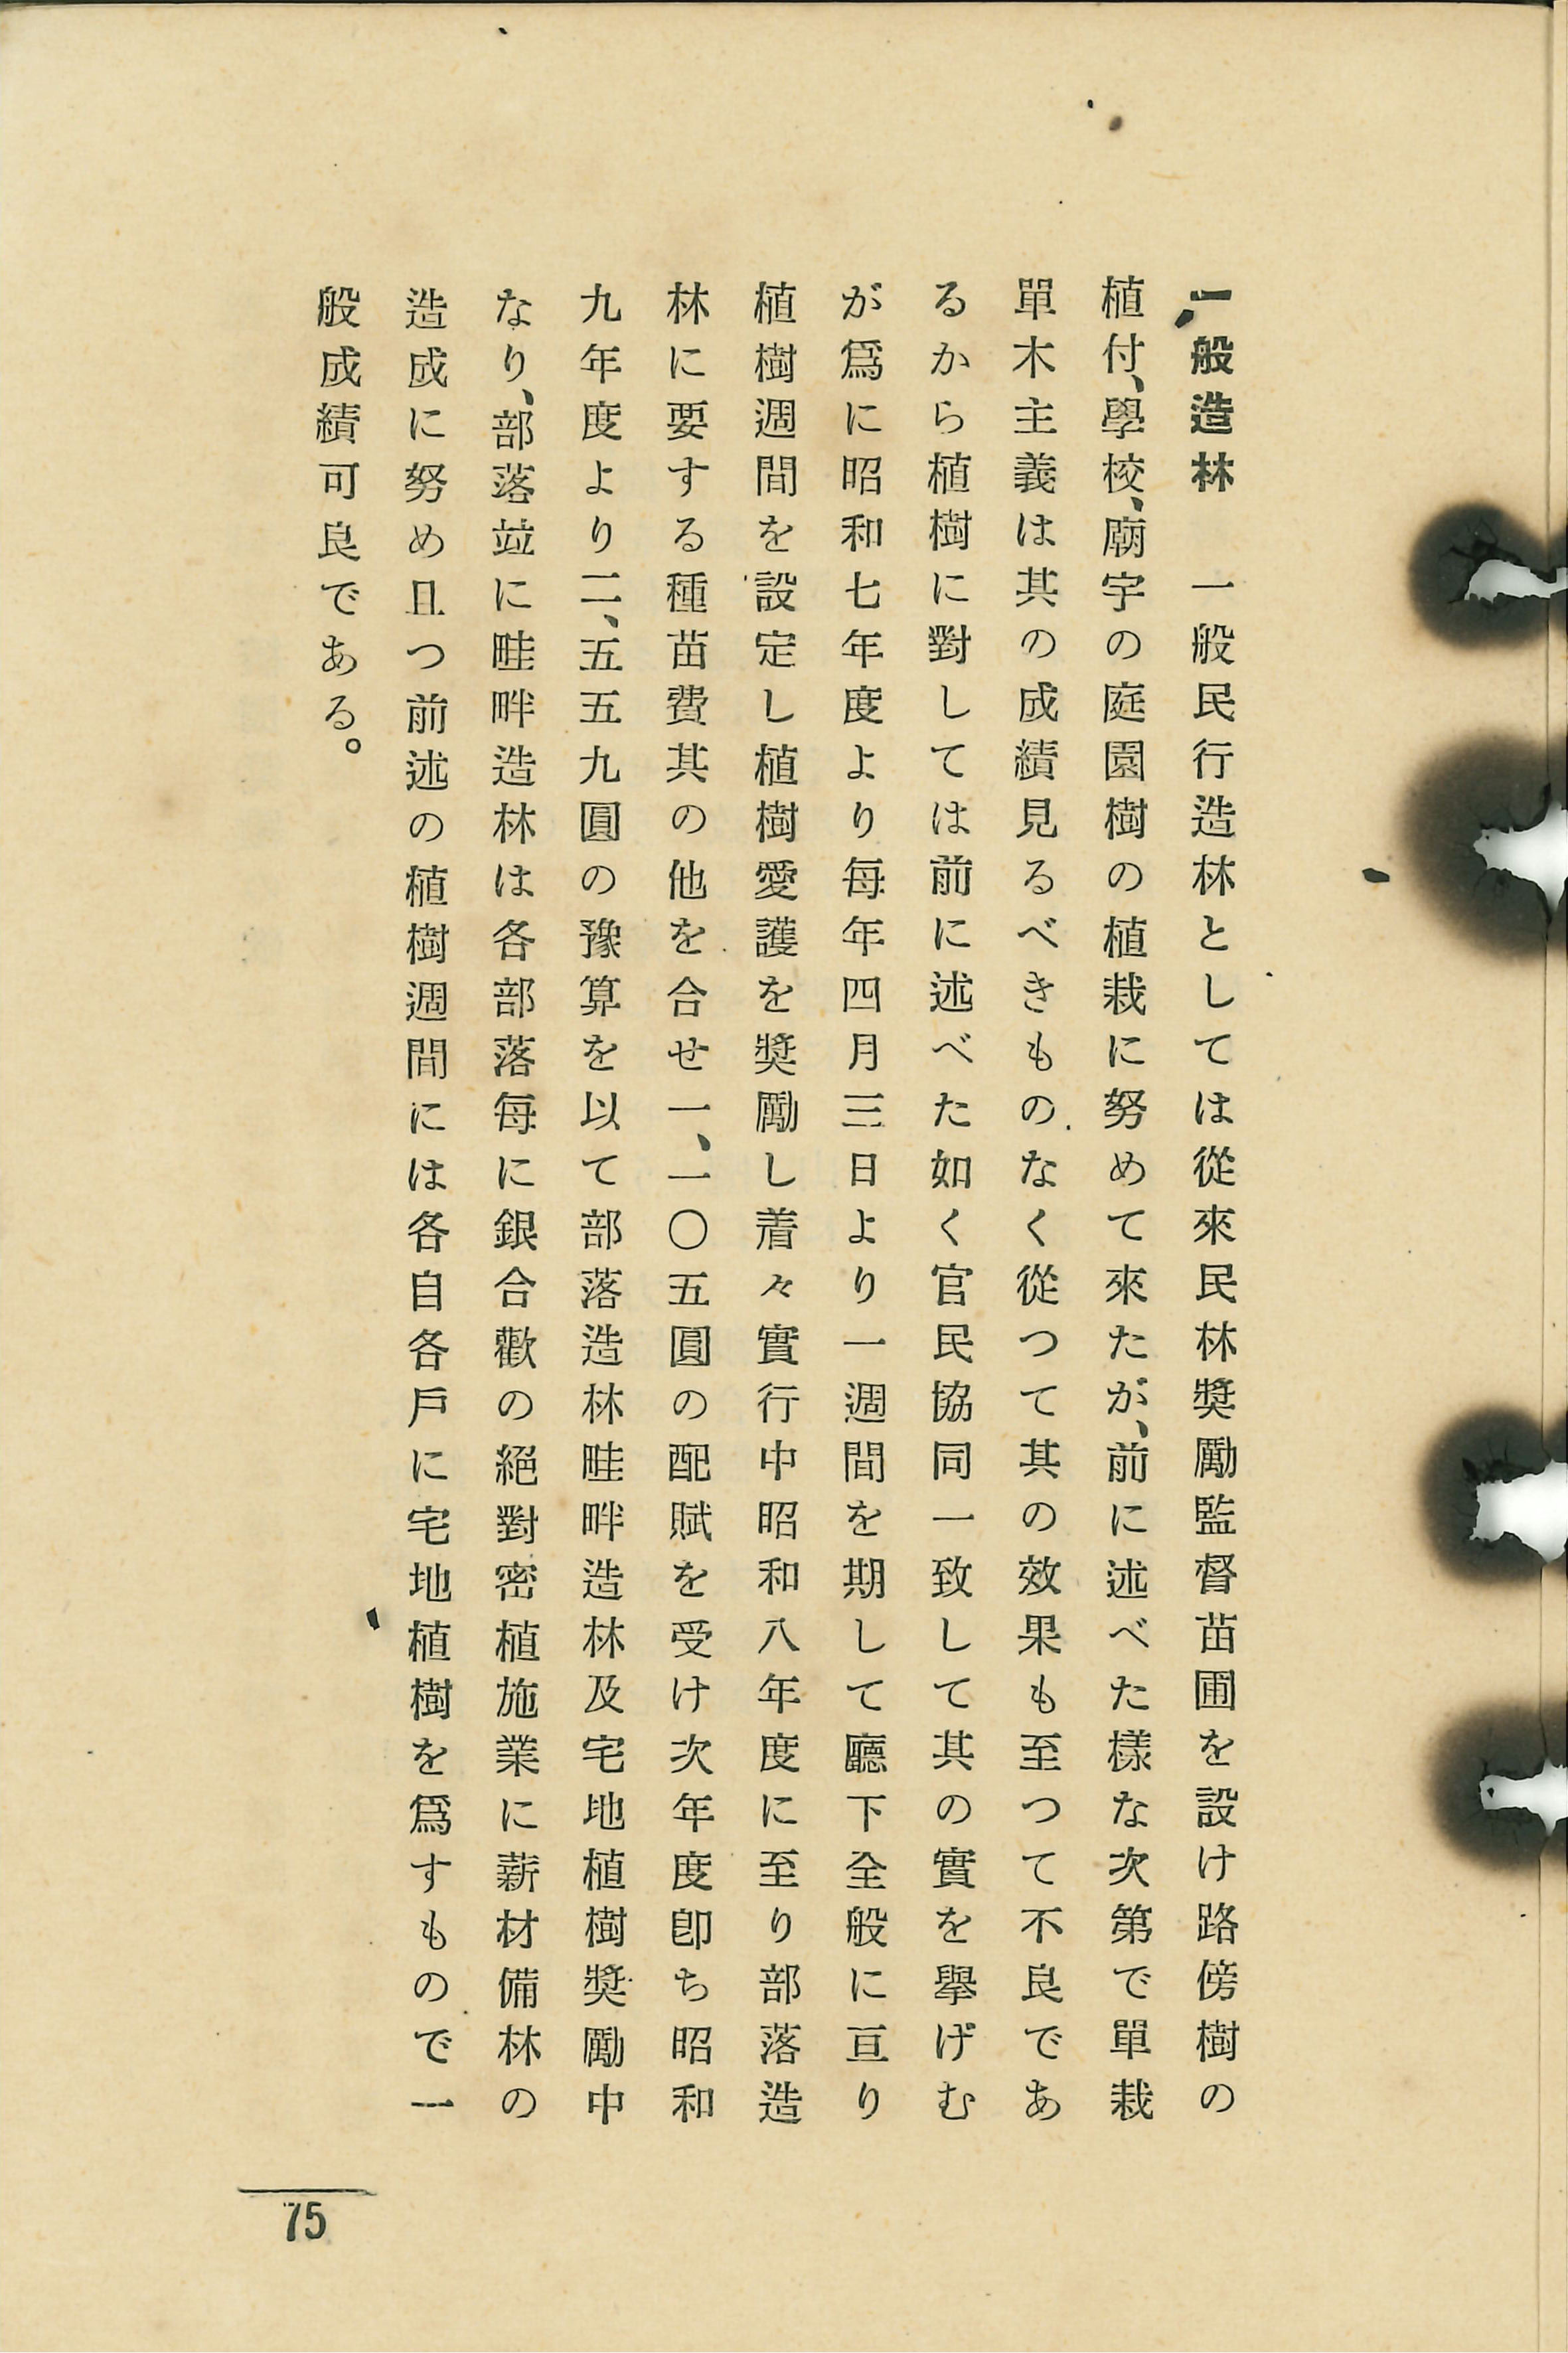 一般造林　一般民行造林としては從來民林奬勵監督苗圃を設け路傍樹の
植付、學校、廟宇の庭園樹の植栽に努めて來たが、前に述べた樣な次第で單栽
單木主義は其の成績見るべきものなく從つて其の效果も至つて不良であ
るから植樹に對しては前に述べた如く官民協同一致して其の實を擧げむ
が爲に昭和七年度より每年四月三日より一週間を期して廳下全般に亘り
植樹週間を設定し植樹愛護を奬勵し着々實行中昭和八年度に至り部落造
林に要する種苗費其の他を合せ一、一〇五圓の配賦を受け次年度卽ち昭和
九年度より二、五五九圓の豫算を以て部落造林畦畔造林及宅地植樹奬勵中
なり、部落竝に畦畔造林は各部落每に銀合歡の絕對密植施業に薪材備林の
造成に努め且つ前述の植樹週間には各自各戶に宅地植樹を爲すもので一
般成績可良である。
75